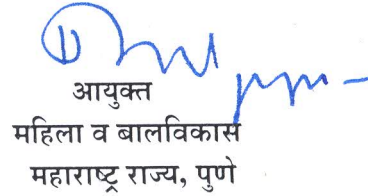 आयुक्त
महिला व बालविकास
महाराष्ट्र राज्य, पुणे